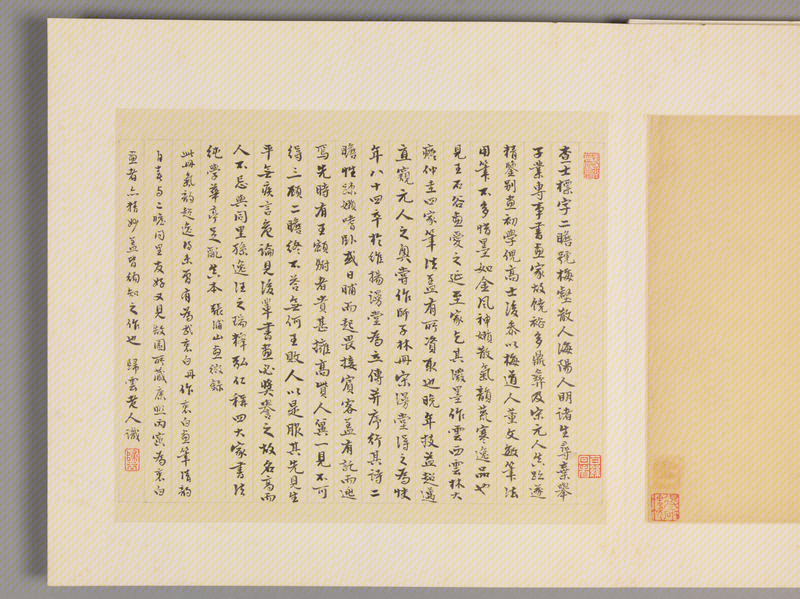 查士標字二瞻號梅壑散人海陽人明諸生尋棄舉
子業專事書畫家故饒裕多藏彝及宋元人真跡遂
精鑒別畫初學倪高士後參以梅道人董文敏筆法
用筆不多惜墨如金風神嬾散氣韻荒寒逸品也
見王石谷畫愛之延至家乞其潑墨作雲西雲林大
癡仲圭四家筆法蓋有所資取也晚年技益超邁
直窺元人之奧嘗作獅子林冊宋漫堂得之為快
年八十四卒於維揚漫堂為立傳并序行其詩二
瞻性疎嬾嗜卧或日晡而起畏接賓客蓋有託而逃
焉先時有王額駙者貴甚擁高貲人冀一見不可
得三顧二瞻終不答無何王敗人以是服其先見生
平無疾言危論見後輩書畫必獎譽之故名高而
人不忌與同里孫逸汪之瑞釋弘仁稱四大家書法
純學華亭足亂真本 張浦山畫徵錄
此冊氣韻超逸得未曾有為武襄白冉作襄白畫筆清韵
自喜與二瞻同里友好又見敝園所藏康熙丙寅為襄白
畫者亦精妙蓋皆徇知之作也 歸雲老人識